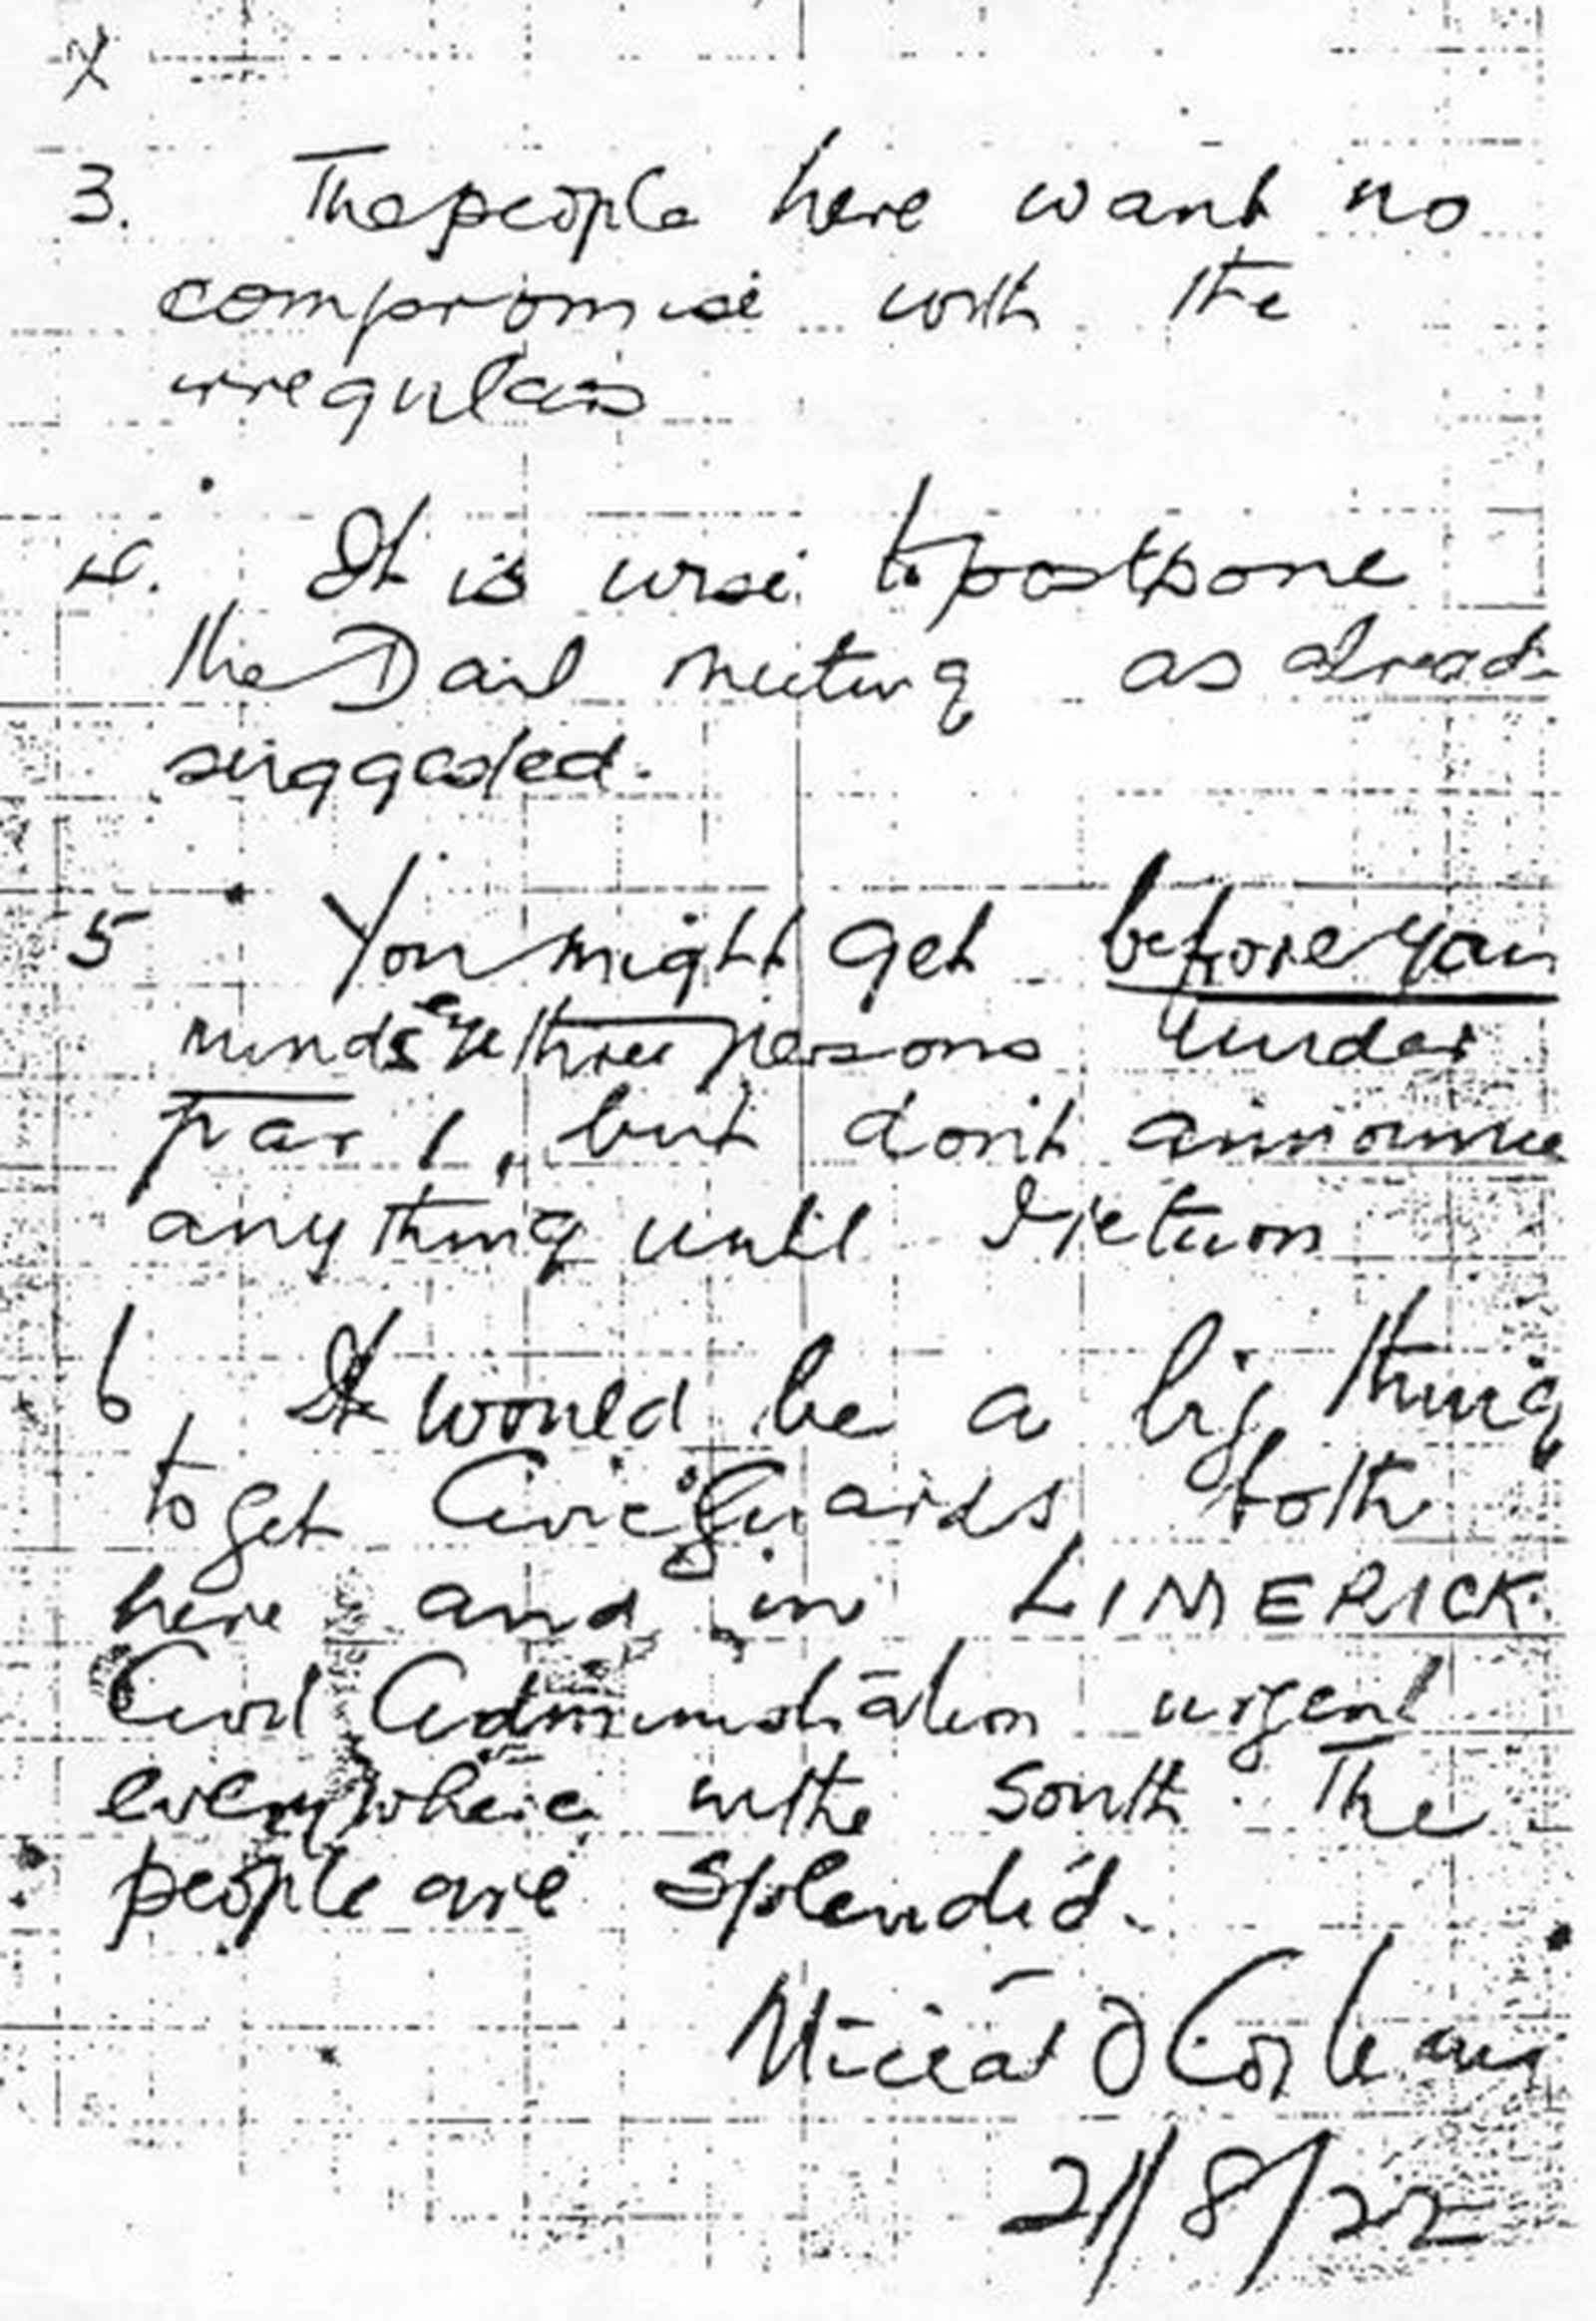 X
3. The people here want no
compromise with the
irregulars
4. It is wise to postpone
the Dail meeting as alread
suggested.
5 You might get before your
minds eye three persons under
par 1, but don't announce
anything until I return
6. It would be a big thing
to get Civic Guards both
here and in LIMERICK.
Civil Administration urgent
everywhere in the South. The
people are splendid.
Mícéál Ó
21/8/22